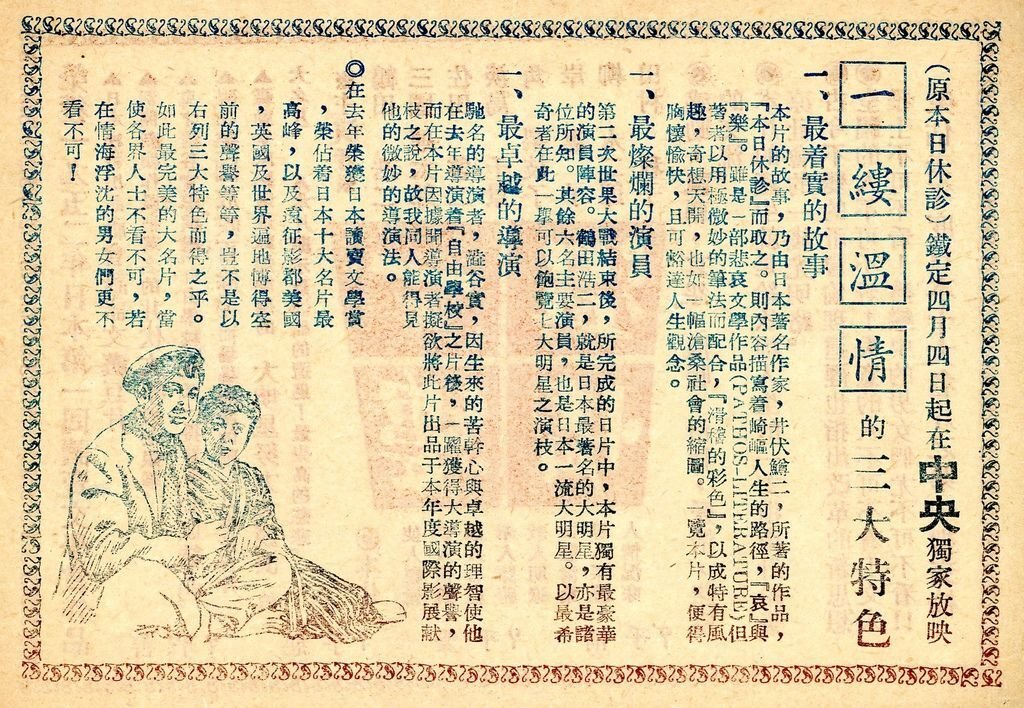 (原本日休診)鐵定四月四日起在中央獨家放映
一縷溫情的三大特色
一、最着實的故事
本片的故事，乃由日本著名作家，井伏鱒二，所著的作品，
『本日休診』而取之。則內容描寫着崎嶇人生的路徑，『哀』與
『樂』。雖是一部悲哀文學作品(PATHOS-LITERATURE)但
著者以用極微妙的筆法而配合，『滑稽的彩色』，以成特有風
趣，奇想天開，也如一幅滄桑社會的縮圖。一覽本片，便得
胸懷愉快，且可豁達人生觀念。
一、最燦爛的演員
第二次世界大戰結束後，所完成的日片中，本片獨有最豪華
的演員陣容。鶴田浩二，就是日本最著名的大明星，亦是諸
位所知。其餘六名主要演員，也是日本一流大明星。以最希
奇者在此一舉可以飽覽七大明星之演枝。
一、最卓越的導演
馳名的導演者，澁谷實，因生來的苦幹心與卓越的理智使他
在去年導演着『自由學校』之片後，一躍獲得大導演的聲譽，
而在本片因據聞導演者擬欲將此片出品于本年度國際影展献
枝之說，故我同人能得見
他的微妙的導演法。
◎在去年榮獲日本讀賣文學賞
，榮佔着日本十大名片最
高峰，以及遠征影都美國
，英國及世界遍地博得空
前的聲譽等等，豈不是以
右列三大特色而得之乎。
如此最完美的大名片，當
使各界人士不看不可，若
在情海浮沈的男女們更不
看不可！